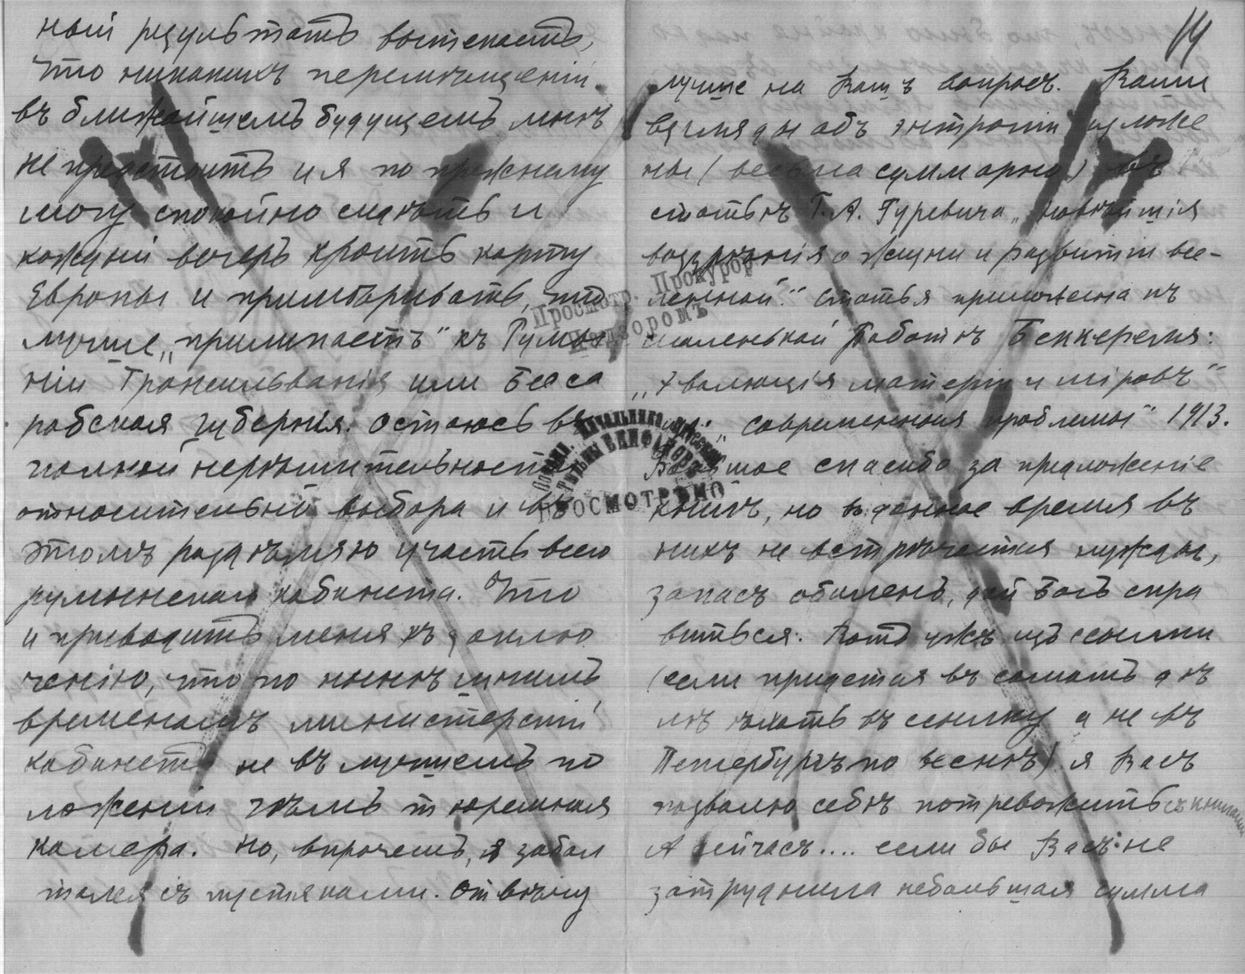 ный результатъ выткаетъ,
что никакихъ перемѣщеній
въ ближайшемъ будущемъ мнѣ
не предстоитъ и я по прежнему
могу спокойно сидѣть и
каждый вечеръ кроить карту
Европы и примѣривать, что
лучше „прилипаетъ" къ Румы
ніи Трансильванія или Бесса
рабская губернія. Остаюсь въ
полной нерѣшительности
относительно выбора и въ
этомъ раздѣляю участь всего
румынскаго кабинета. Что
и приводитъ меня къ заклю
ченію, что по нынѣшнимъ
временамъ министерскій
кабинетъ не въ лучшемъ по
ложеніи чѣмъ тюремная
камера. Но, впрочемъ, я забол
тался съ пустяками. Отвѣчу
14
лучше на Вашъ вопросъ. Ваши
взгляды объ энтропіи изложе
ны (весьма суммарно) въ
статьѣ Г. А. Гуревича „новѣйшія
воззрѣнія о жизни и развитіи все-
ленной." Статья приложена къ
маленькой работѣ Беккереля:
„Эволюція матеріи и міровъ"
„современныя проблемы" 1913.
Большое спасибо за предложеніе
книгъ, но въ данное время въ
нихъ не встрѣчается нужды,
запасъ обиленъ, дай Богъ спра
виться. Вотъ ужъ изъ ссылки
(если придется въ самомъ дѣ
лѣ ѣхать въ ссылку а не въ
Петербургъ по веснѣ) я Васъ
позволю себѣ потревожить съ книгами
А сейчасъ.... если бы Васъ не
затруднила небольшая сумма
Просмотр. Прокурор
Надзоромъ
Начальника
ПРОСМОТРѢНО